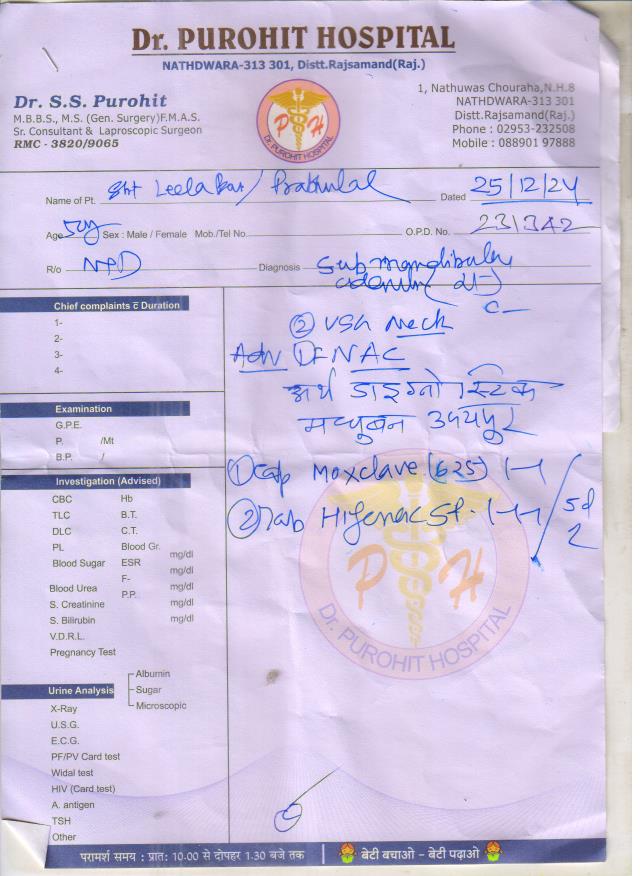 Dr. PUROHIT HOSPITAL
NATHDWARA-313 301, Distt.Rajsamand(Raj.)
Dr. S.S. Purohit
M.B.B.S., M.S. (Gen. Surgery)F.M.A.S.
Sr. Consultant & Laproscopic Surgeon
RMC - 3820/9065
P H
Dr. PUROHIT HOSPITAL
1, Nathuwas Chouraha,N.H.8
NATHDWARA-313 301
Distt.Rajsamand(Raj.)
Phone : 02953-232508
Mobile : 088901 97888
Name of Pt. Leela Bai / Prabhulal Dated 25/12/24
Age Sex : Male / Female Mob./Tel No. O.P.D. No. 231342
R/o Diagnosis Submandibular
Chief complaints c̅ Duration
1-
2-
3-
4-
Examination
G.P.E.
P. /Mt
B.P. /
Investigation (Advised)
CBC Hb
TLC B.T.
DLC C.T.
PL Blood Gr.
Blood Sugar ESR mg/dl
F- mg/dl
Blood Urea P.P. mg/dl
S. Creatinine mg/dl
S. Bilirubin mg/dl
V.D.R.L.
Pregnancy Test
Urine Analysis
Albumin
Sugar
Microscopic
X-Ray
U.S.G.
E.C.G.
PF/PV Card test
Widal test
HIV (Card test)
A. antigen
TSH
Other
② USG neck
Adv FNAC
अर्थ डाइग्नोस्टिक
मधुबन उदयपुर
① Cap Moxclave (625) 1-1
② Tab Hifenac 1-1 5d
P H
Dr. PUROHIT HOSPITAL
परामर्श समय : प्रात: 10-00 से दोपहर 1.30 बजे तक
बेटी बचाओ - बेटी पढ़ाओ